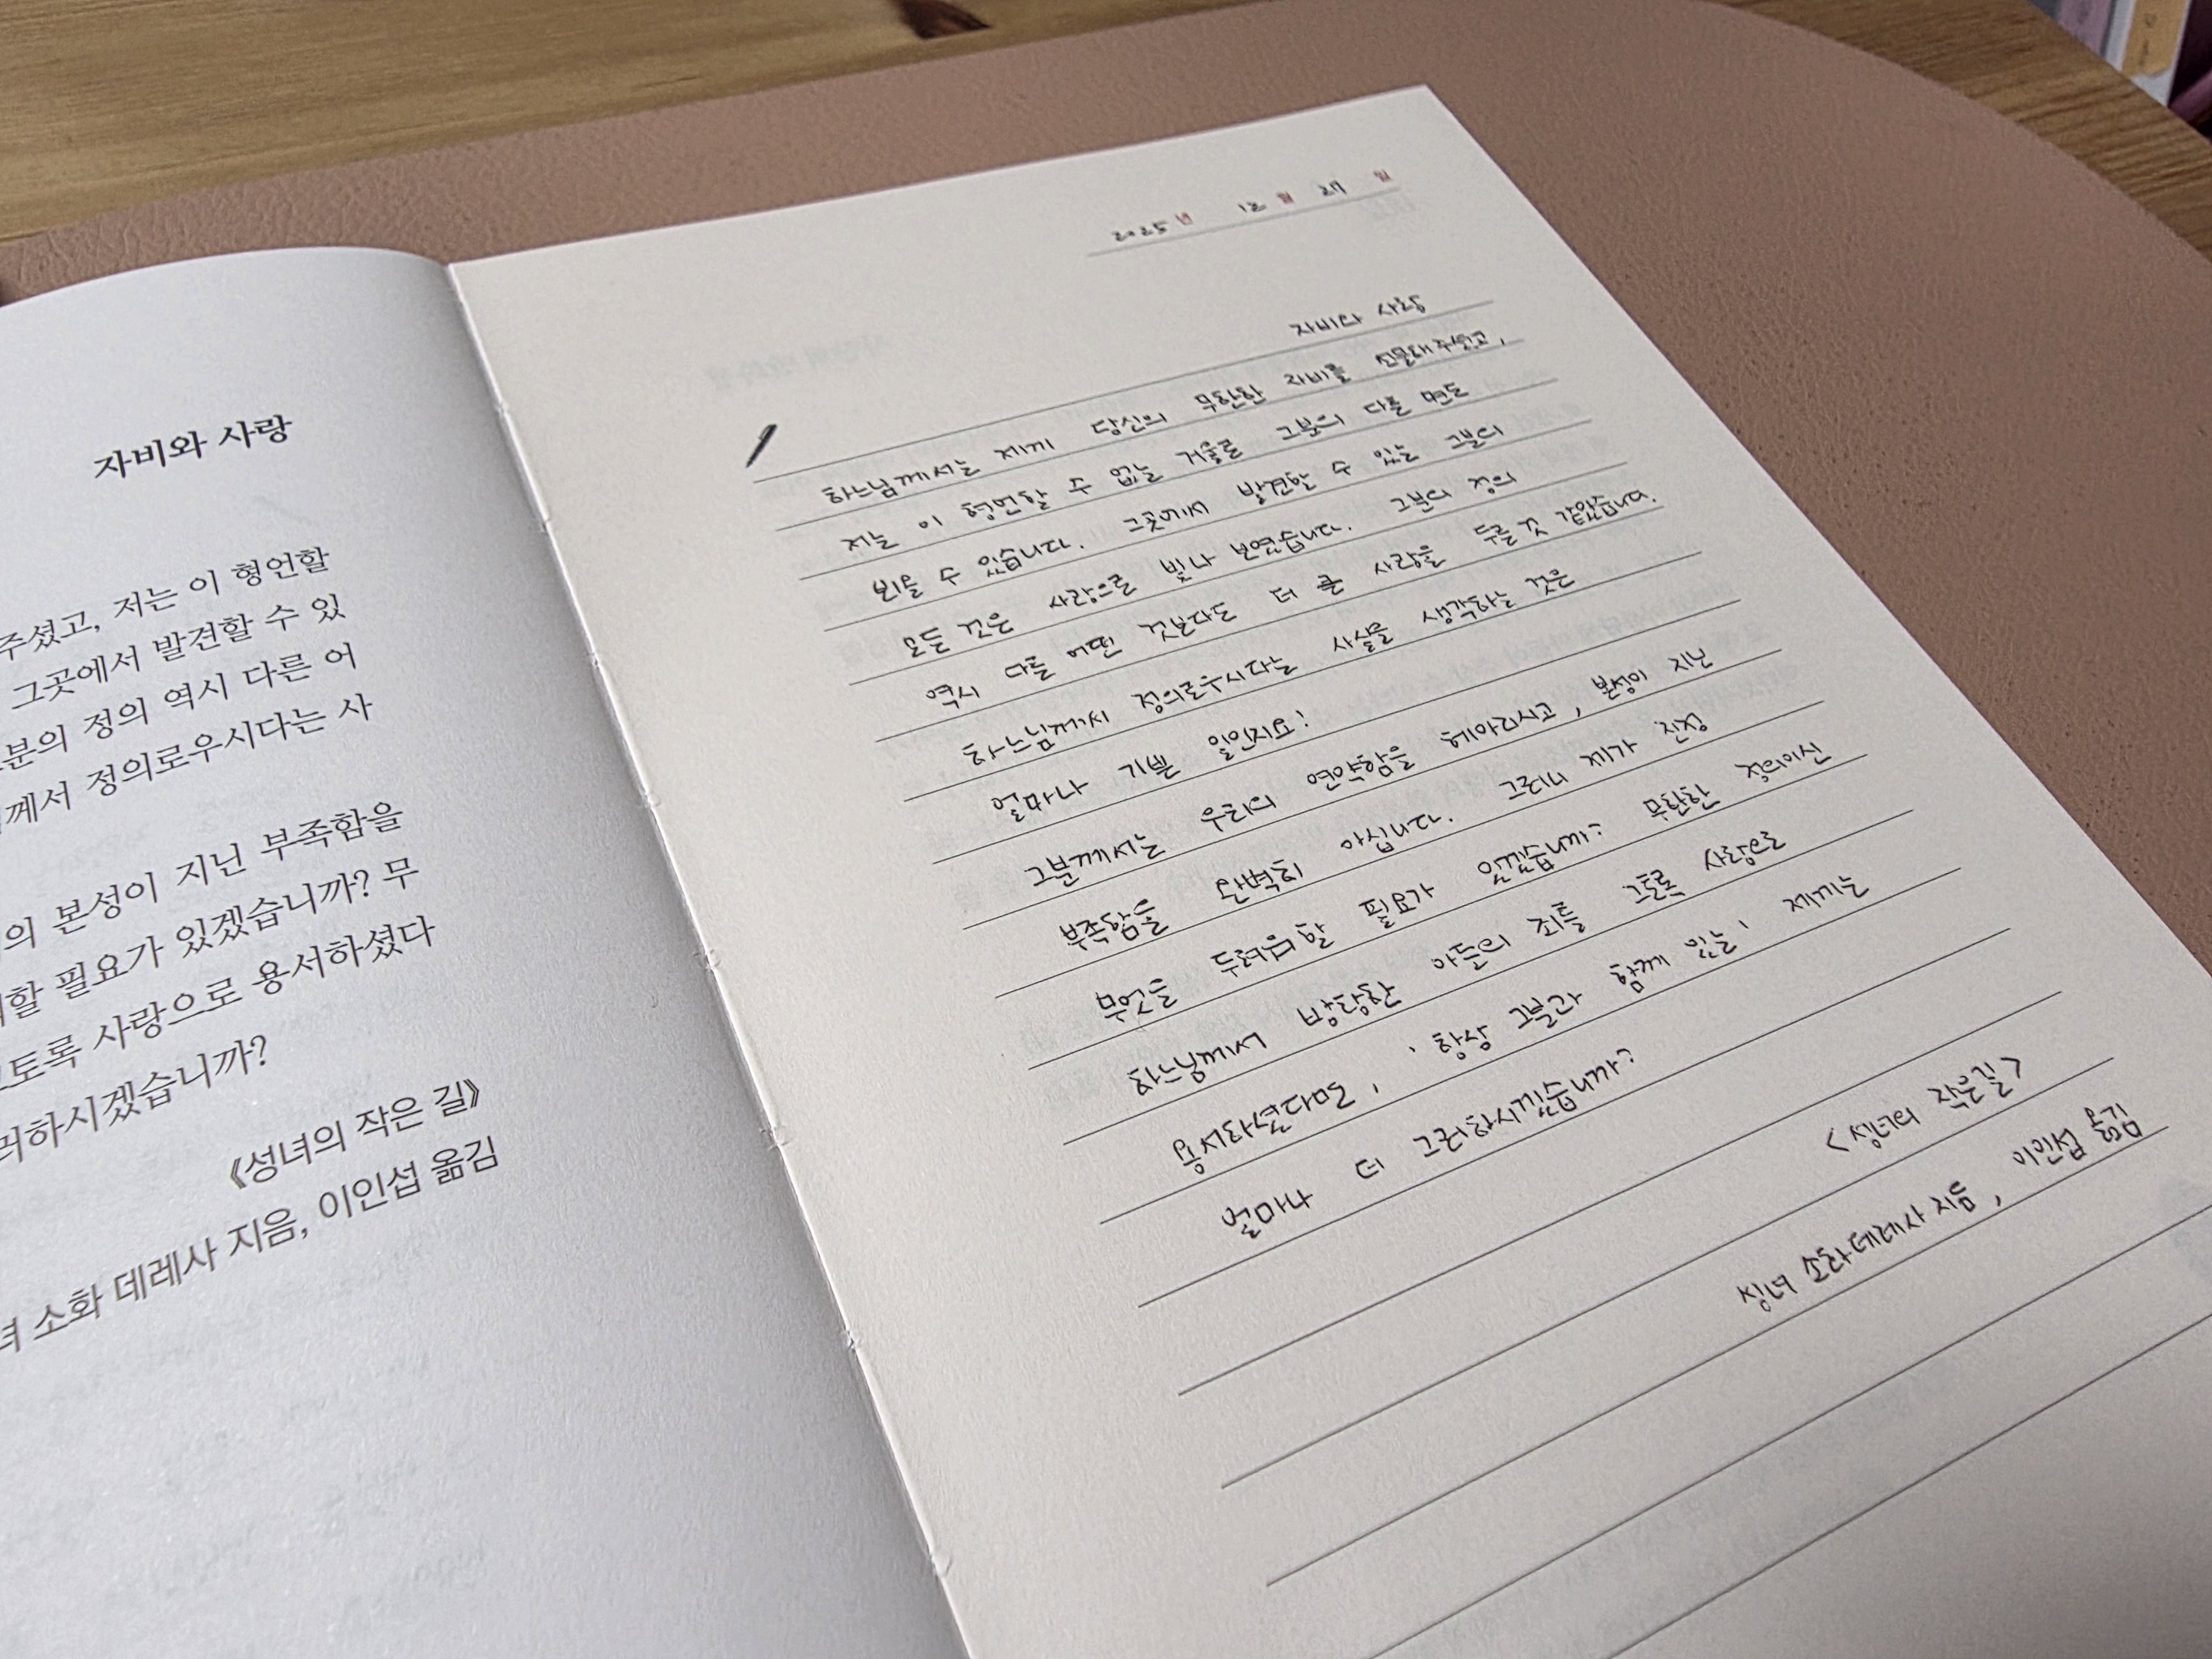 자비와 사랑
주셨고, 저는 이 형언할
그곳에서 발견할 수 있
분의 정의 역시 다른 어
께서 정의로우시다는 사
의 본성이 지닌 부족함을
할 필요가 있겠습니까? 무
토록 사랑으로 용서하셨다
러하시겠습니까?
《성녀의 작은 길》
녀 소화 데레사 지음, 이인섭 옮김
2025년 12월 27일
자비와 사랑
하느님께서는 제게 당신의 무한한 자비를 선물해주셨고,
저는 이 형언할 수 없는 거울로 그분의 다른 면도
뵈올 수 있습니다. 그곳에서 발견할 수 있는 그분의
모든 것은 사랑으로 빛나 보였습니다. 그분의 정의
역시 다른 어떤 것보다도 더 큰 사랑을 두른 것 같았습니다.
하느님께서 정의로우시다는 사실을 생각하는 것은
얼마나 기쁜 일인지요!
그분께서는 우리의 연약함을 헤아리시고, 본성이 지닌
부족함을 완벽히 아십니다. 그러니 제가 진정
무엇을 두려워할 필요가 있겠습니까? 무한한 정의이신
하느님께서 방탕한 아들의 죄를 그토록 사랑으로
용서하셨다면, '항상 그분과 함께 있는' 제게는
얼마나 더 그러하시겠습니까?
<성녀의 작은길>
성녀 소화데레사 지음, 이인섭 옮김